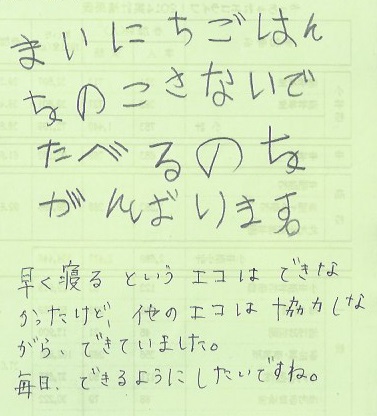 まいにちごはん
をのこさないで
たべるのを
がんばります。
早く寝る というエコは できな
かったけど、他のエコは 協力しな
がら、できていました。
毎日、できるようにしたいですね。